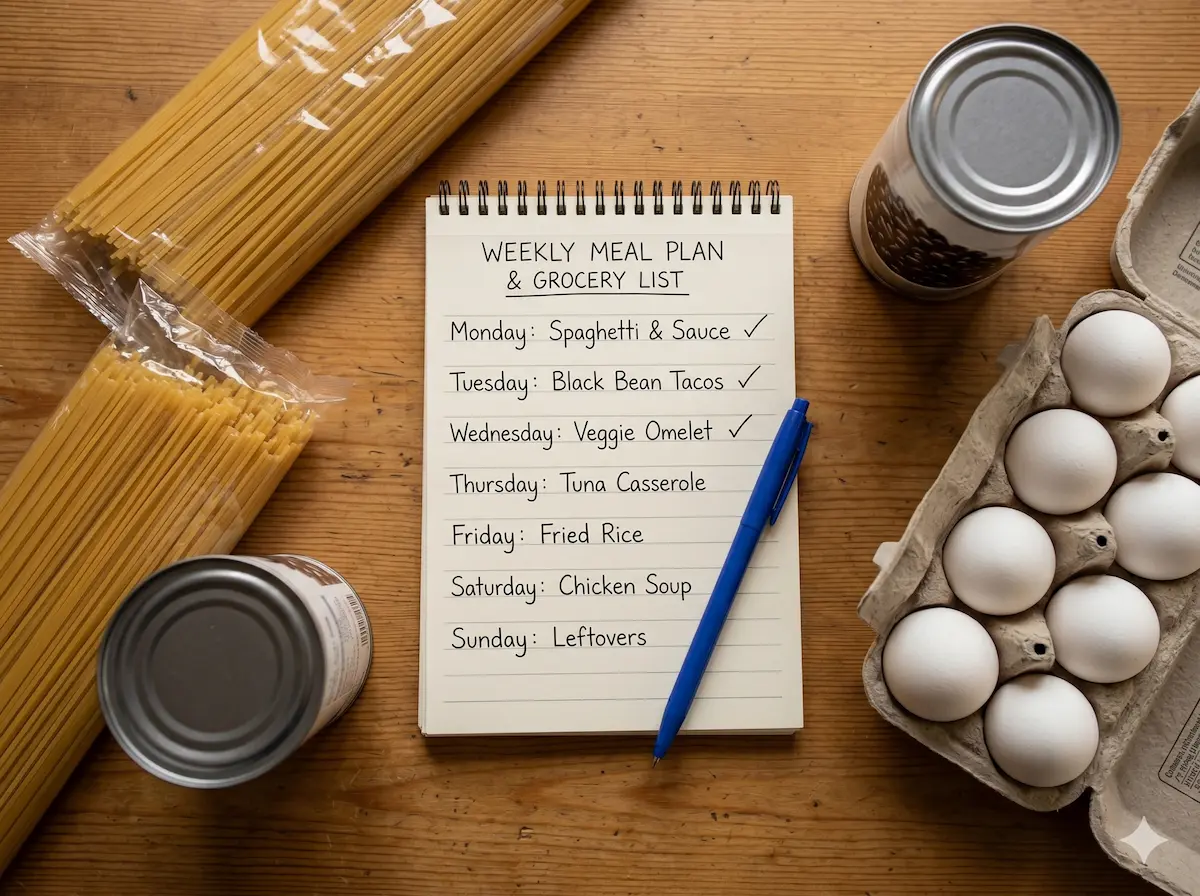 WEEKLY MEAL PLAN
& GROCERY LIST
Monday: Spaghetti & Sauce ✓
Tuesday: Black Bean Tacos ✓
Wednesday: Veggie Omelet ✓
Thursday: Tuna Casserole
Friday: Fried Rice
Saturday: Chicken Soup
Sunday: Leftovers